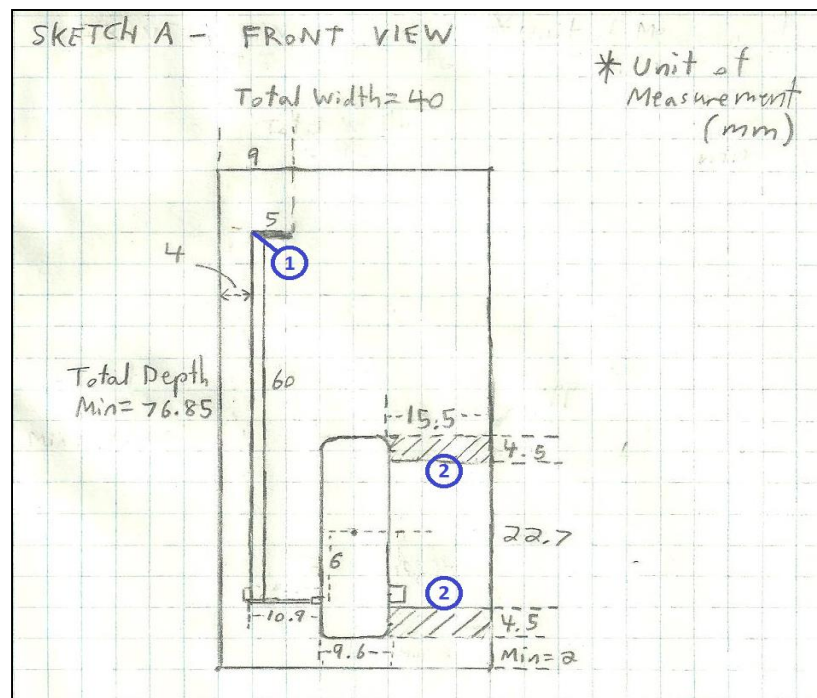 SKETCH A - FRONT VIEW
* Unit of
Measurement
(mm)
Total Width = 40
9
5
1
4
Total Depth
Min = 76.85
60
15.5
4.5
2
22.7
6
2
10.9
4.5
9.6
Min = 2